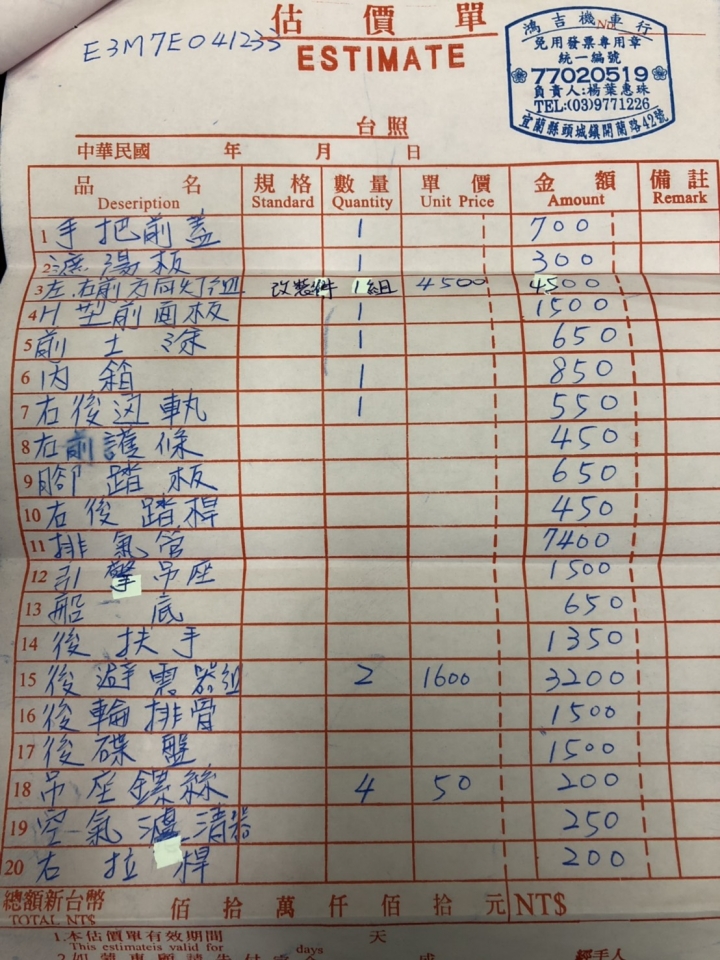 估價單
ESTIMATE
E3M7E041233
鴻吉機車行
No
免用發票專用章
統一編號
77020519
負責人:楊葉惠珠
TEL:(03)9771226
宜蘭縣頭城鎮開蘭路42號
台照
中華民國 年 月 日
品 名 規格 數量 單 價 金 額 備註
Deseription Standard Quantity Unit Price Amount Remark
1 手把前蓋 1 700
2 遮湯板 1 300
3 左.右前方向灯組 改裝件 1組 4500 4500
4 H型前面板 1 1500
5 前土除 1 650
6 內箱 1 850
7 右後 1 550
8 右前護條 450
9 腳踏板 650
10 右後踏桿 450
11 排氣管 7400
12 引擎吊座 1500
13 船底 650
14 後扶手 1350
15 後避震器組 2 1600 3200
16 後輪排骨 1500
17 後碟盤 1500
18 吊座鏍絲 4 50 200
19 空氣濾清器 250
20 右拉桿 200
總額新台幣 佰拾萬仟佰拾元 NT$
TOTAL NT$
1.本估價單有效期間 天
This estimateis valid for days
經手人